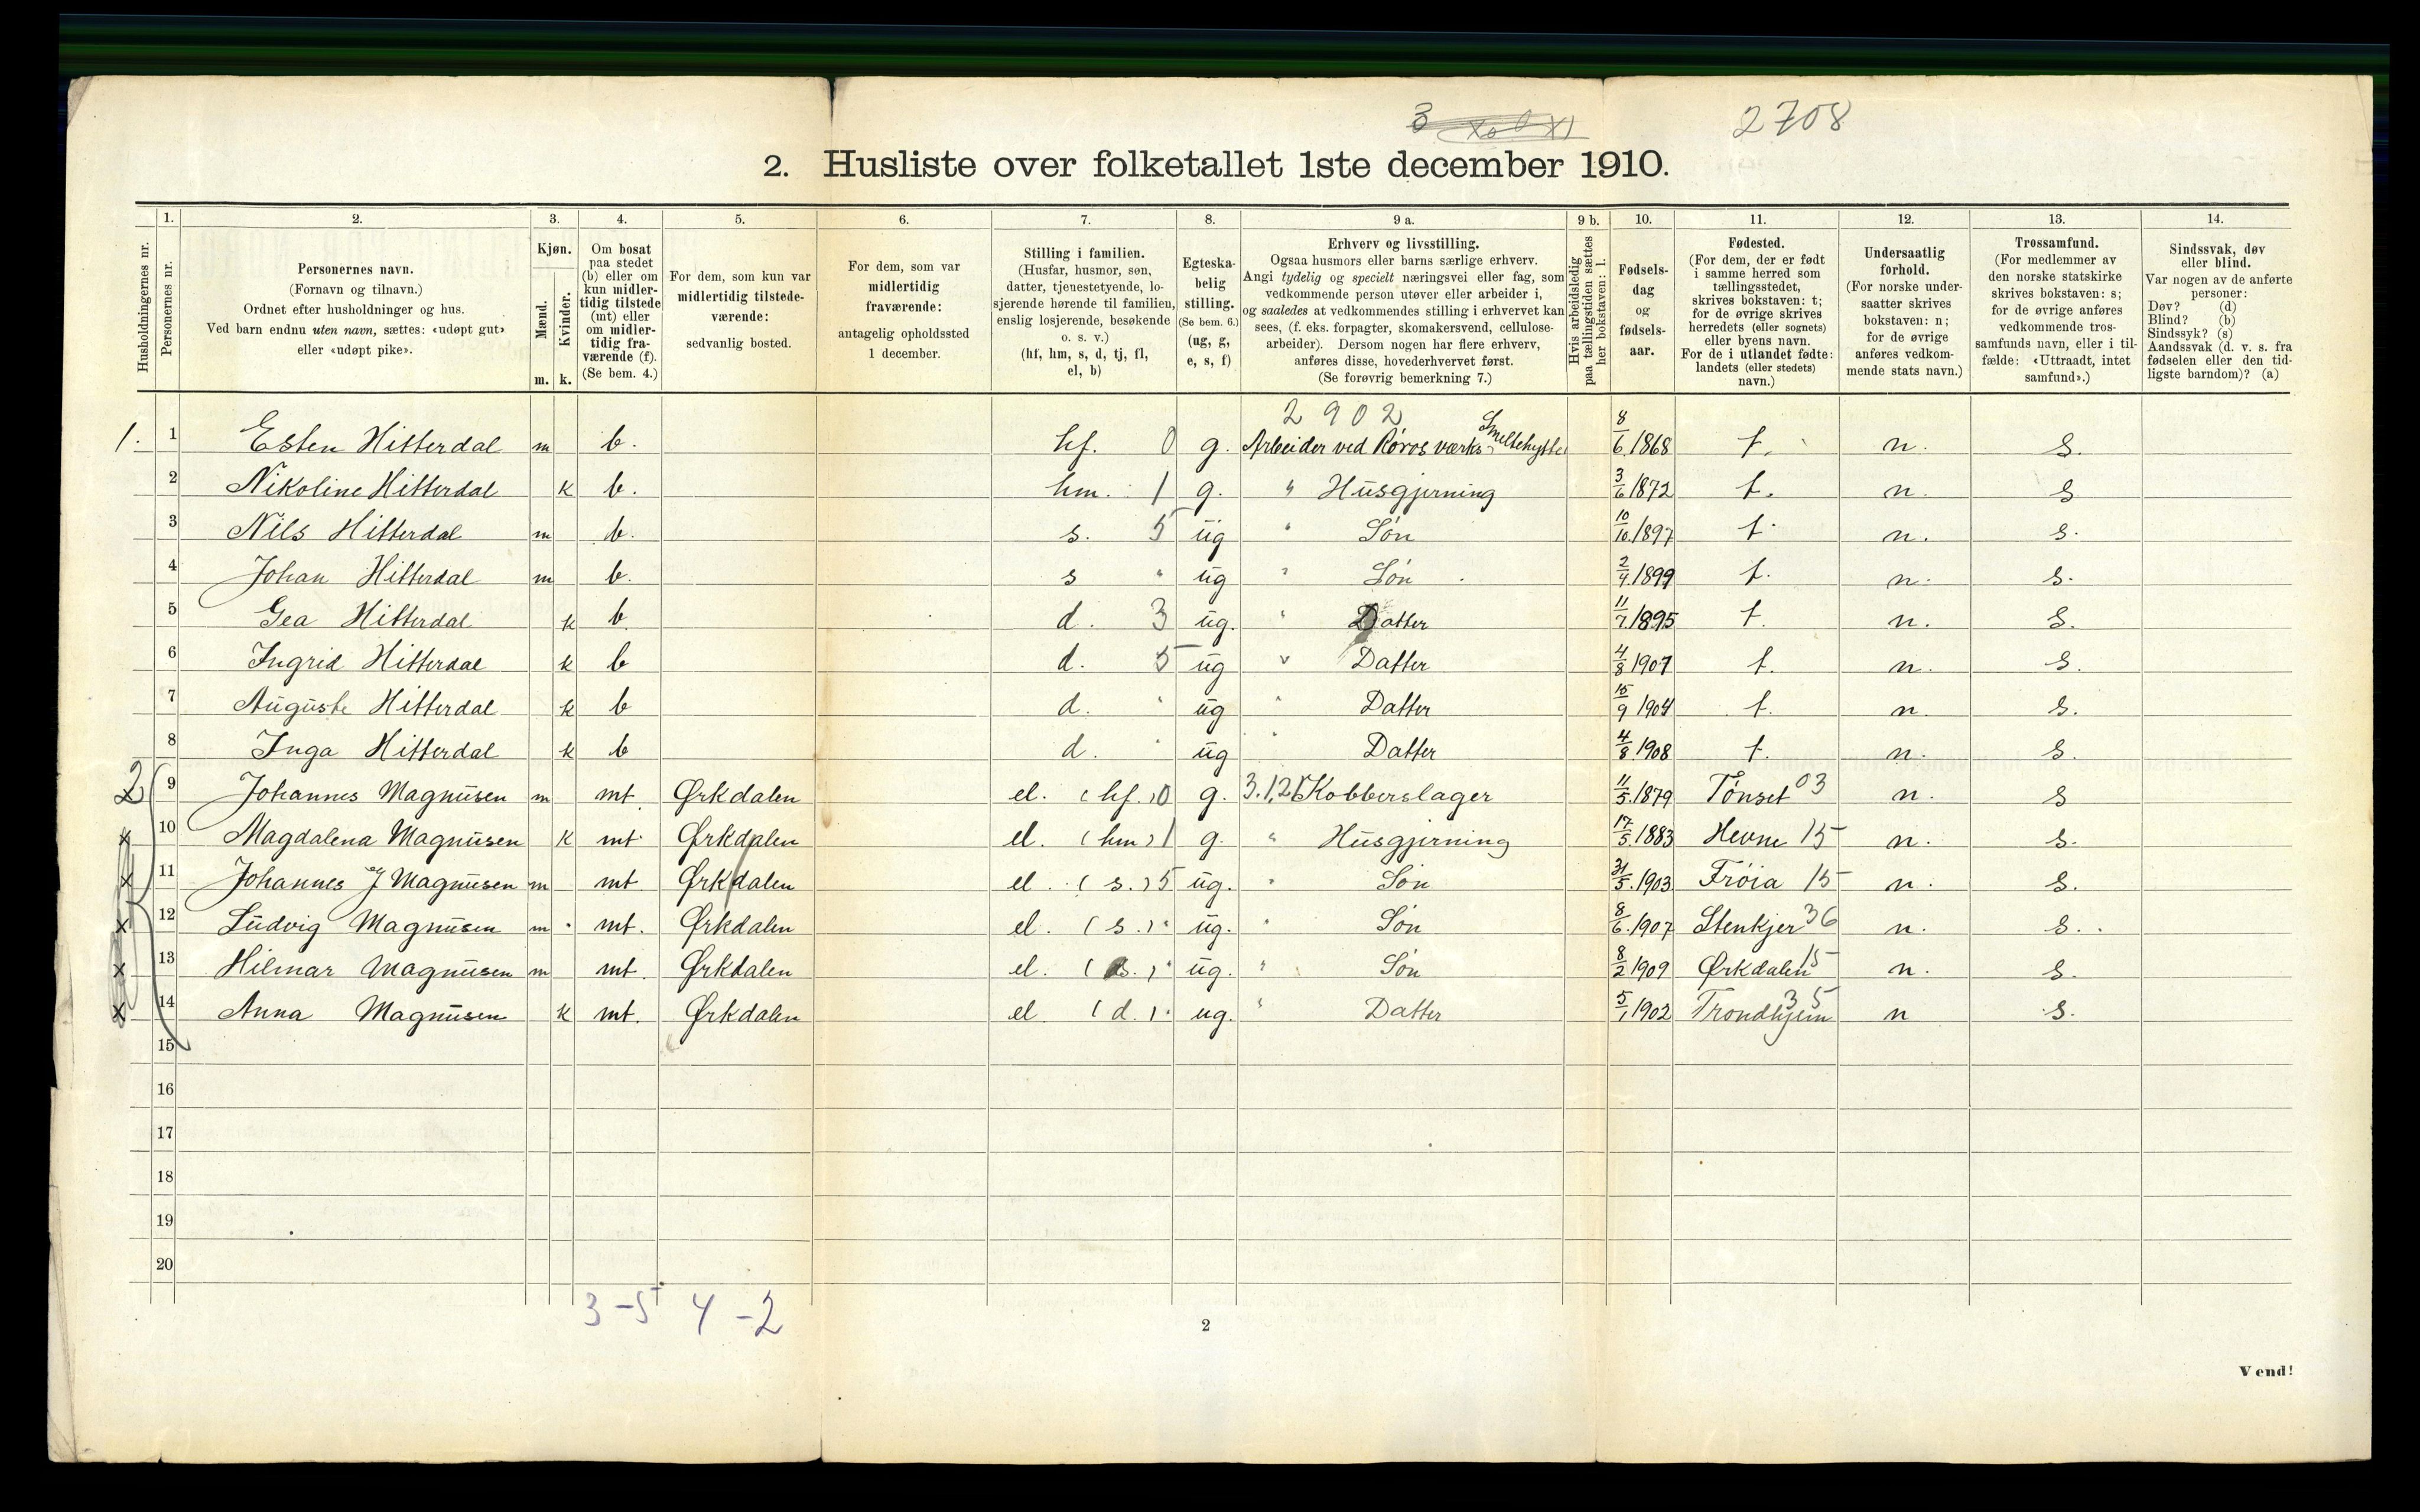 3
2708
2. Husliste over folketallet 1ste december 1910.
Husholdningernes nr.
1. Personernes nr.
2. Personernes navn. (Fornavn og tilnavn.) Ordnet efter husholdninger og hus. Ved barn endnu uten navn, sættes: «udøpt gut» eller «udøpt pike».
3. Kjøn. Mænd. m. Kvinder. k.
4. Om bosat paa stedet (b) eller om kun midler-tidig tilstede (mt) eller om midler-tidig fra-værende (f). (Se bem. 4.)
5. For dem, som kun var midlertidig tilstede-værende: sedvanlig bosted.
6. For dem, som var midlertidig fraværende: antagelig opholdssted 1 december.
7. Stilling i familien. (Husfar, husmor, søn, datter, tjenestetyende, lo-sjerende hørende til familien, enslig losjerende, besøkende o. s. v.) (hf, hm, s, d, tj, fl, el, b)
8. Egteska-belig stilling. (Se bem. 6.) (ug, g, e, s, f)
9 a. Erhverv og livsstilling. Ogsaa husmors eller barns særlige erhverv. Angi tydelig og specielt næringsvei eller fag, som vedkommende person utøver eller arbeider i, og saaledes at vedkommendes stilling i erhvervet kan sees, (f. eks. forpagter, skomakersvend, cellulose-arbeider). Dersom nogen har flere erhverv, anføres disse, hovederhvervet først. (Se forøvrig bemerkning 7.)
9 b. Hvis arbeidsledig paa tællingstiden sættes her bokstaven: l.
10. Fødsels-dag og fødsels-aar.
11. Fødested. (For dem, der er født i samme herred som tællingsstedet, skrives bokstaven: t; for de øvrige skrives herredets (eller sognets) eller byens navn. For de i utlandet fødte: landets (eller stedets) navn.)
12. Undersaatlig forhold. (For norske under-saatter skrives bokstaven: n; for de øvrige anføres vedkom-mende stats navn.)
13. Trossamfund. (For medlemmer av den norske statskirke skrives bokstaven: s; for de øvrige anføres vedkommende tros-samfunds navn, eller i til-fælde: «Uttraadt, intet samfund».)
14. Sindssvak, døv eller blind. Var nogen av de anførte personer: Døv? (d) Blind? (b) Sindssyk? (s) Aandssvak (d. v. s. fra fødselen eller den tid-ligste barndom)? (a)
2902
1. 1 Esten Hitterdal m b. hf. 0 g. Arbeider ved Røros værks Smeltehytte 8/6 1868 t. n. s.
2 Nikoline Hitterdal k b. hm. 1 g. " Husgjerning 3/6 1872 t. n. s
3 Nils Hitterdal m b. s. 5 ug " Søn 10/10 1897 t n. s.
4 Johan Hitterdal m b. s " ug " Søn 2/4 1899 t. n. s.
5 Gea Hitterdal k b d. 3 ug. " Datter 11/7 1895 t. n. s.
6 Ingrid Hitterdal k b d. 5 ug " Datter 4/8 1907 t. n. s.
7 Auguste Hitterdal k b d. " ug " Datter 15/9 1904 t. n. s.
8 Inga Hitterdal k b d. " ug " Datter 4/8 1908 t. n. s.
2 9 Johannes Magnusen m mt. Ørkdalen el. (hf.) 0 g. 3.1.21 Kobberslager 11/5 1879 Tønset 03 n. s
x 10 Magdalena Magnusen k mt Ørkdalen el. (hm) 1 g. " Husgjerning 17/5 1883 Hevne 15 n. s.
x 11 Johannes J Magnusen m mt Ørkdalen el. (s.) 5 ug. " Søn 31/5 1903 Frøia 15 n. s.
x 12 Ludvig Magnusen m mt. Ørkdalen el. (s.) " ug. " Søn 8/6 1907 Stenkjer 36 n. s.
x 13 Hilmar Magnusen m mt. Ørkdalen el. (s.) " ug. " Søn 8/2 1909 Ørkdalen 15 n. s.
x 14 Anna Magnusen k mt. Ørkdalen el (d.) " ug. " Datter 5/1 1902 Trondhjem 35 n s.
15
16
17
18
19
20
3-5 4-2
2
Vend!